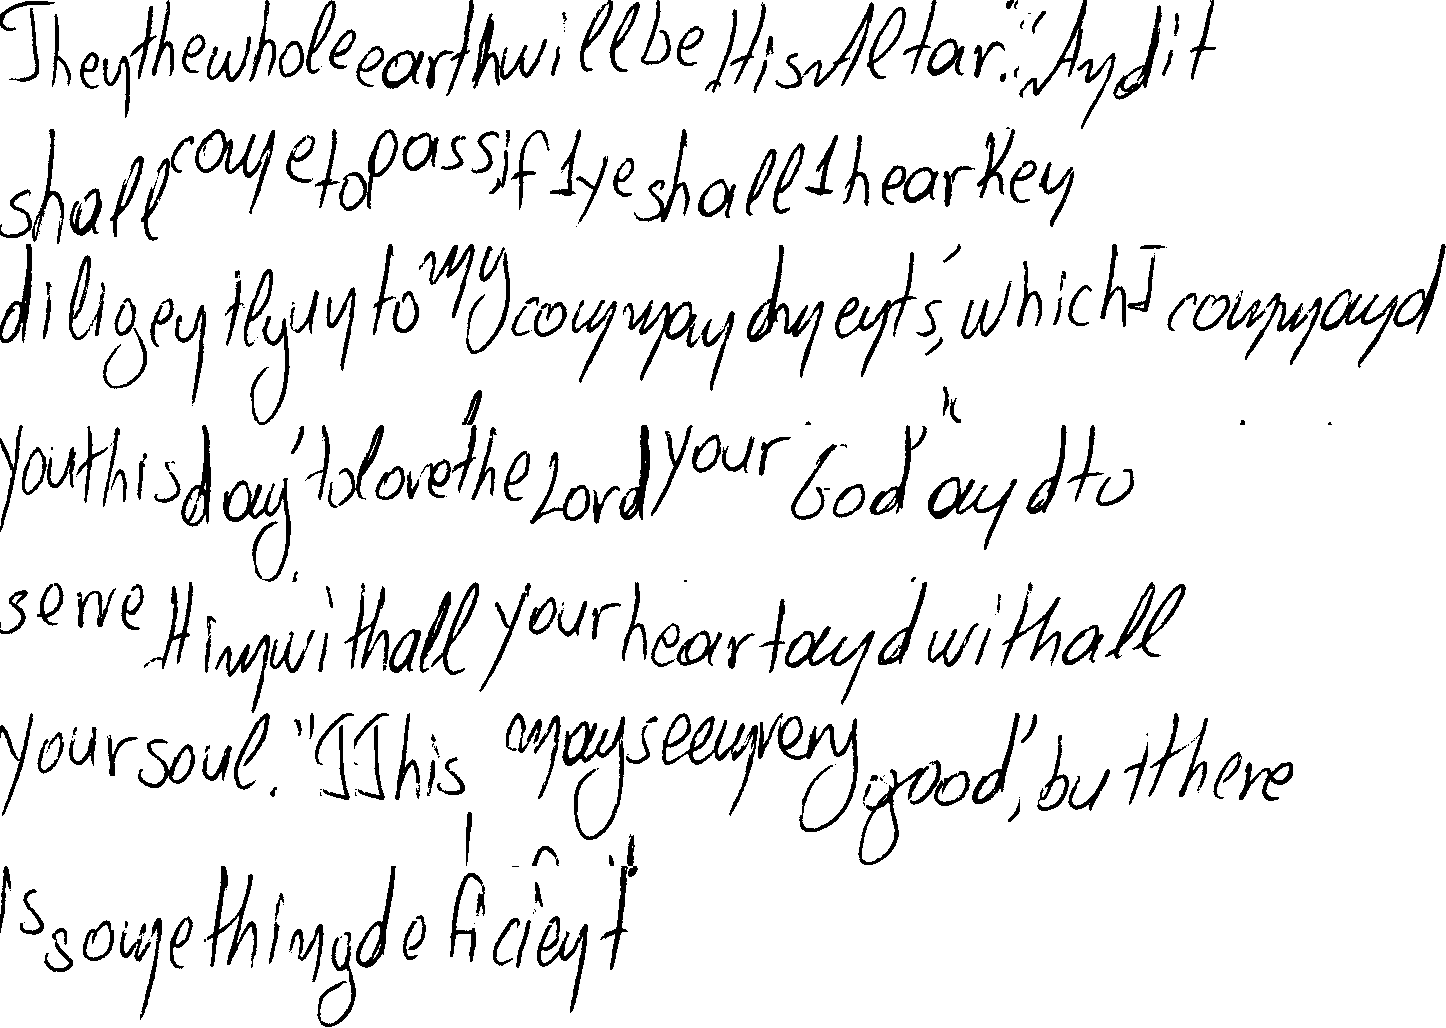 Then the whole earth will be His Altar." "And it
shall come to pass, if 1 ye shall 1 hearken
diligently unto my commandments, which I command
you this day to love the Lord your God" and to
serve Him with all your heart and with all
your soul. "This may seem very good", but there
is something deficient